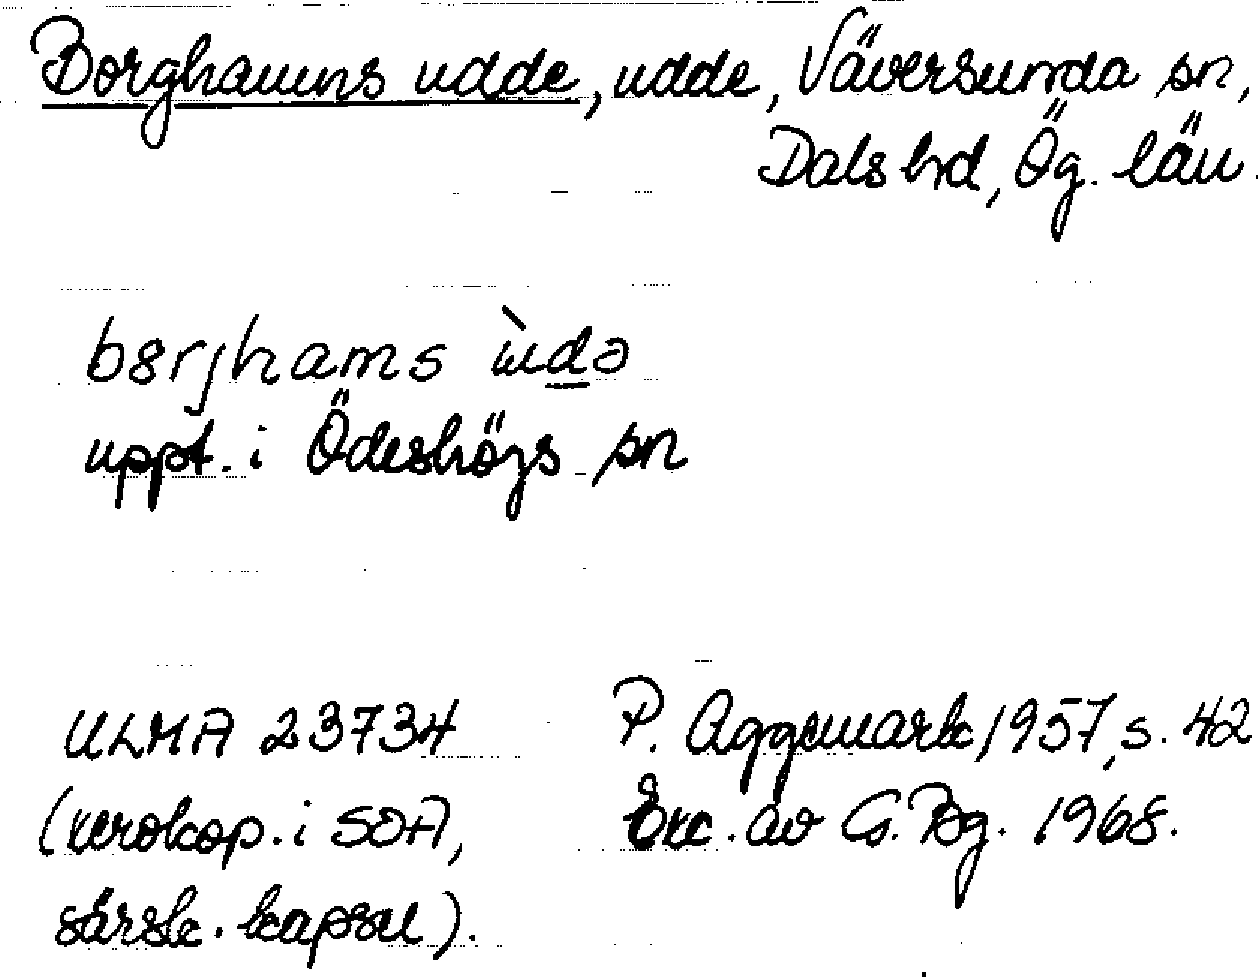 Borghamns udde, udde, Väversunda sn,
Dals hd, Ög. län.
bɞrjhams ùdə
uppt. i Ödeshögs sn
ULMA 23734 P. Aggemark 1957, s. 42
(xerokop. i SOA, Exc. av G. Bg. 1968.
särsk. kapsel).